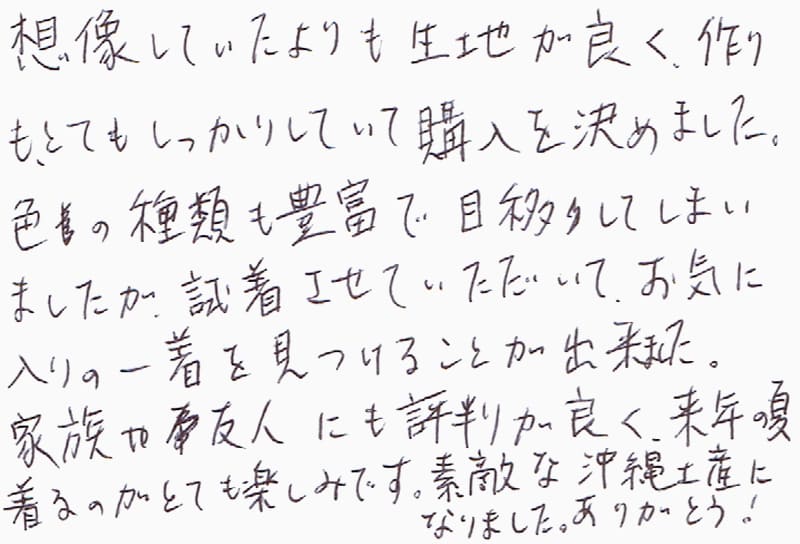 想像していたよりも生地が良く、作り
も、とてもしっかりしていて購入を決めました。
色の種類も豊富で目移りしてしまい
ましたが、試着させていただいて、お気に
入りの一着を見つけることが出来ました。
家族や友人にも評判が良く、来年の夏
着るのがとても楽しみです。素敵な沖縄土産に
なりました。ありがとう!